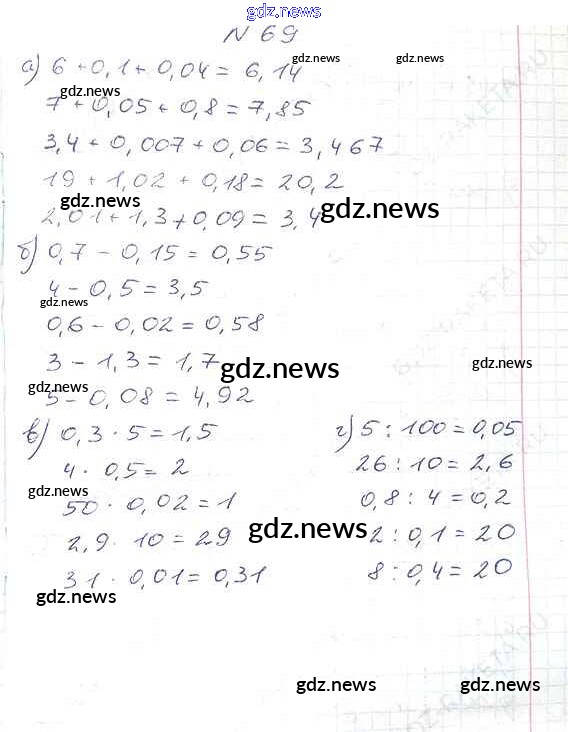 gdz.news
N 69
gdz.news gdz.news
а) 6 + 0,1 + 0,04 = 6,14
gdz.news
7 + 0,05 + 0,8 = 7,85
3,4 + 0,007 + 0,06 = 3,467
19 + 1,02 + 0,18 = 20,2
gdz.news gdz.news
2,01 + 1,3 + 0,09 = 3,4
б) 0,7 - 0,15 = 0,55
4 - 0,5 = 3,5
gdz.news
0,6 - 0,02 = 0,58
3 - 1,3 = 1,7
gdz.news gdz.news
gdz.news
5 - 0,08 = 4,92
в) 0,3 · 5 = 1,5
4 · 0,5 = 2
gdz.news
50 · 0,02 = 1
2,9 · 10 = 29
31 · 0,01 = 0,31
gdz.news
г) 5 : 100 = 0,05
26 : 10 = 2,6
0,8 : 4 = 0,2
gdz.news
2 : 0,1 = 20
8 : 0,4 = 20
gdz.news gdz.news